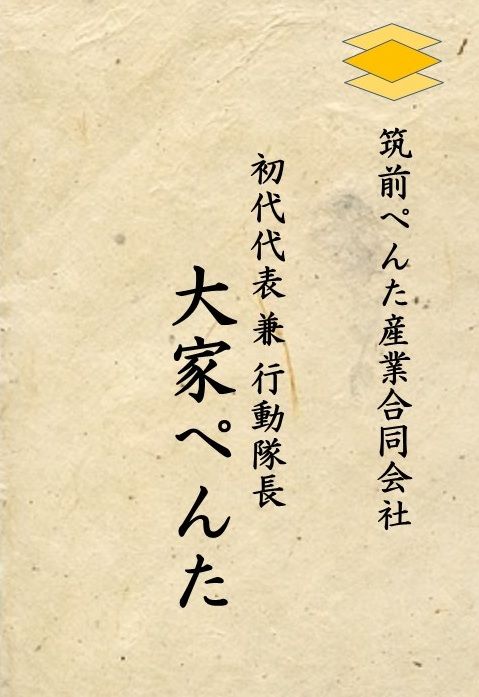 筑前ぺんた産業合同会社
初代代表 兼 行動隊長
大家ぺんた